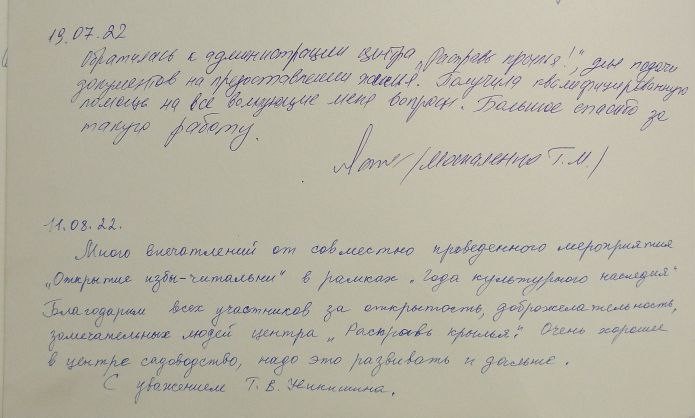 19.07.22
Обратилась к администрации центра „Расправь крылья!", для подачи
документов на предоставлении жилья. Получила квалифицированную
помощь на все волнующие меня вопросы. Большое спасибо за
такую работу.
/Москаленко Т.М./
11.08.22.
Много впечатлений от совместно проведенного мероприятия
„Открытие избы-читальни" в рамках „Года культурного наследия"
Благодарим всех участников за открытость, доброжелательность,
замечательных людей центра „Расправь крылья". Очень хорошее
в центре садоводство, надо это развивать и дальше.
С уважением Т.В. Никишина.